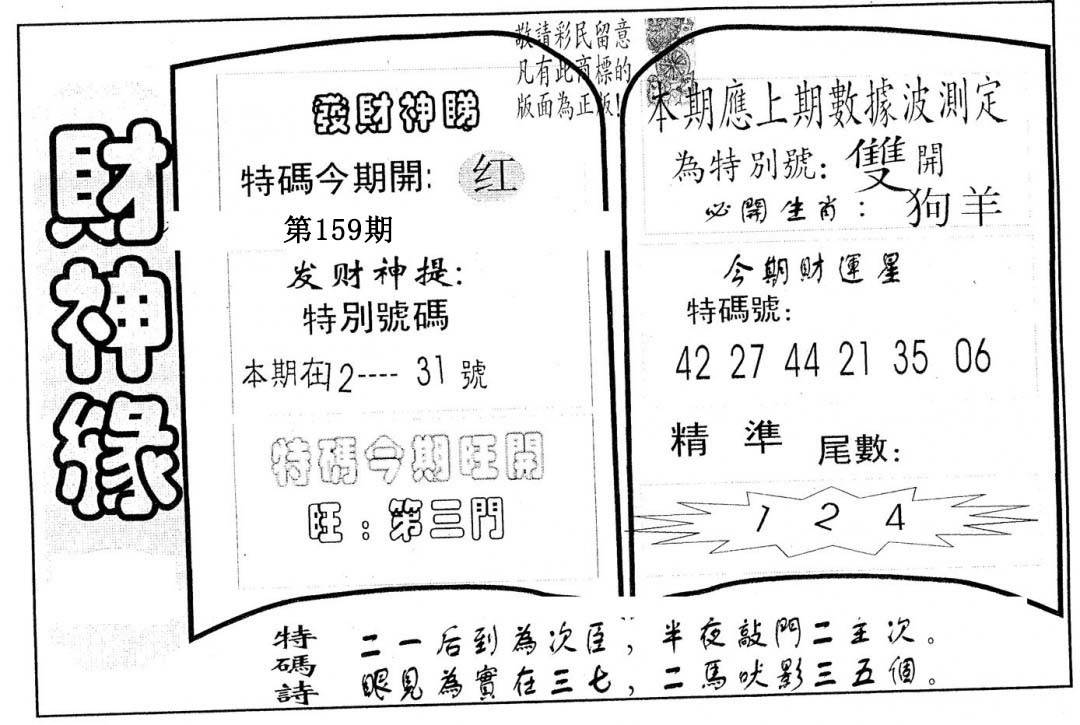 財神緣
敬請彩民留意
凡有此商標的
版面為正版!
發財神睇
特碼今期開: 红
第159期
发财神提:
特別號碼
本期在12---- 31 號
特碼今期旺開
旺:第三門
本期應上期數據波測定
為特別號: 雙開
必開生肖: 狗羊
今期財運星
特碼號:
42 27 44 21 35 06
精 準 尾數:
1 2 4
特碼詩
二一后到為次臣, 半夜敲門二主次。
眼見為實在三七, 二馬吠影三五個。